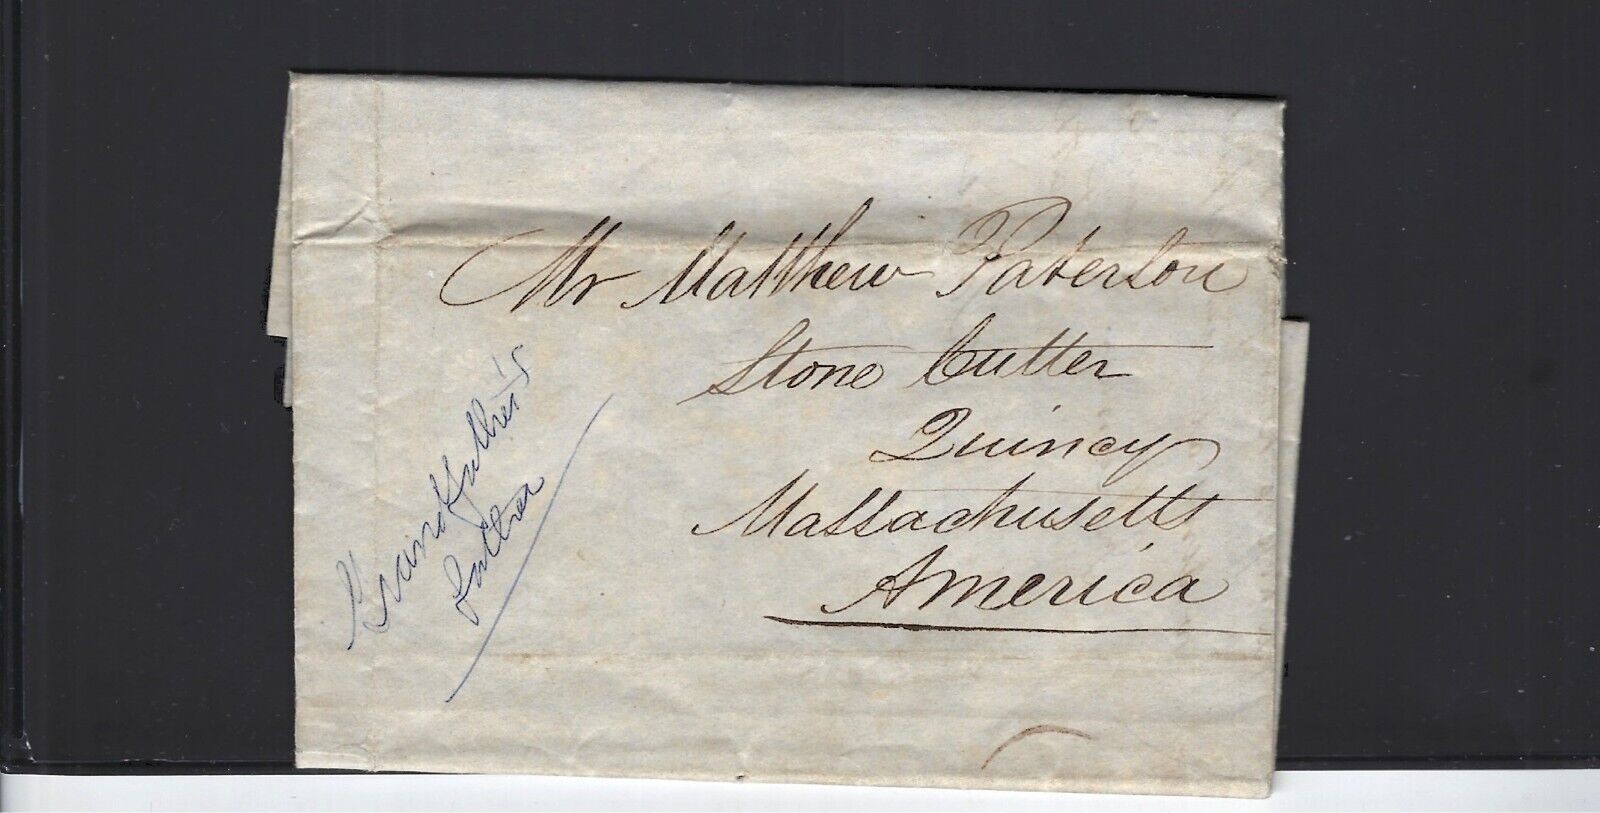 Mr Matthew Paterson
Stone Cutter
Quincy
Massachusetts
America
Grandfather's
father